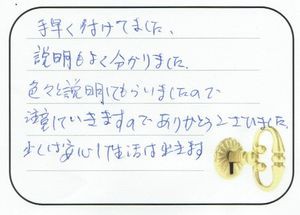 手早く付けてました、
説明もよく分かりました。
色々と説明してもらいましたので
注意していきますのでありがとうございました。
少しは安心し生活は出来ます